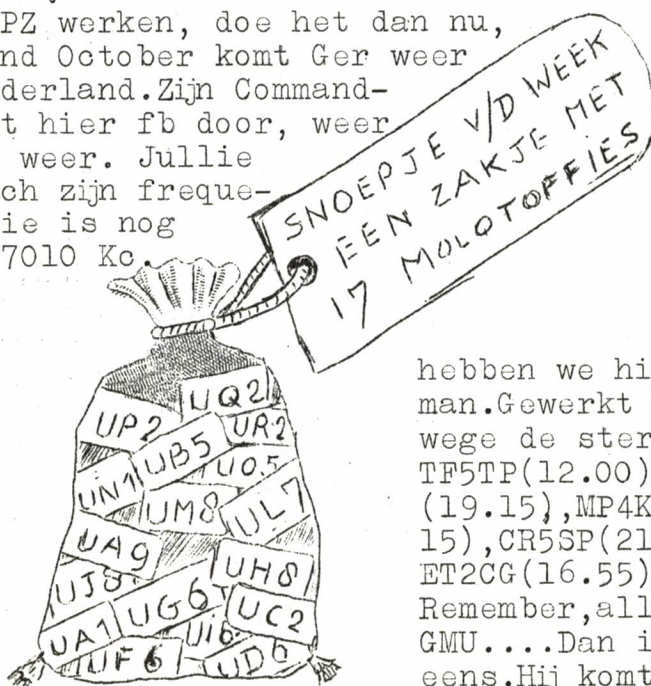 PZ werken, doe het dan nu,
nd October komt Ger weer
derland.Zijn Command-
t hier fb door, weer
weer. Jullie
ch zijn freque-
ie is nog
7010 Kc.
SNOEPJE V/D WEEK
EEN ZAKJE MET
17 MOLOTOFFIES
UQ2
UP2
UR2
UB5
UO.5
UN1
UM8
UL7
UA9
UH8
UJ8
UG6
UC2
UA1
UI6
UF6
UD6
hebben we hi
man.Gewerkt
wege de ster
TF5TP(12.00)
(19.15),MP4K
15),CR5SP(21
ET2CG(16.55)
Remember,all
GMU....Dan i
eens.Hij komt